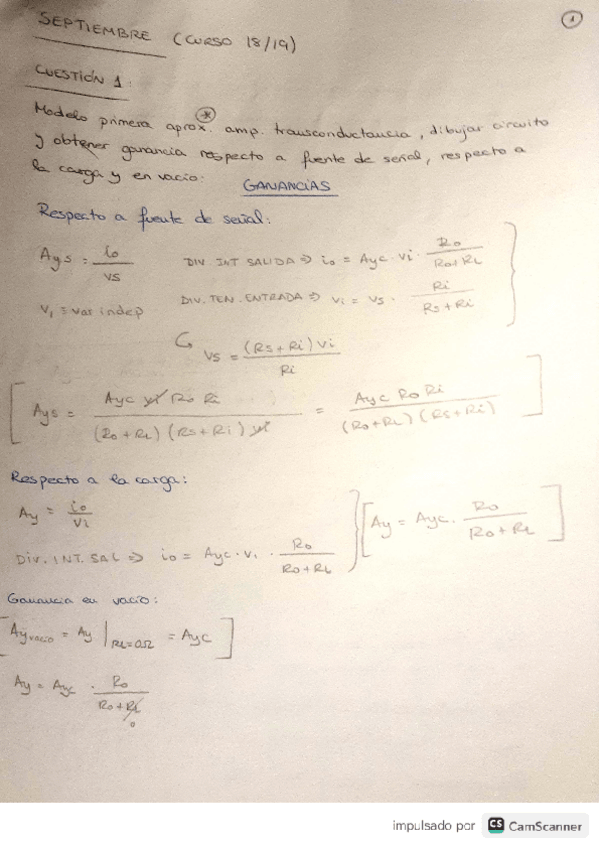 1
SEPTIEMBRE (CURSO 18/19)
CUESTIÓN 1:
Modelo primera aprox.* amp. transconductancia, dibujar circuito
y obtener ganancia respecto a fuente de señal, respecto a
la carga y en vacío:
GANANCIAS
Respecto a fuente de señal:
Ays = io / vs
DIV. INT SALIDA ⇒ io = Ayc · vi · Ro / (Ro + RL)
vi ≡ var indep
DIV. TEN. ENTRADA ⇒ vi = vs · Ri / (Rs + Ri)
↳ vs = (Rs + Ri) vi / Ri
[ Ays = Ayc vi Ro Ri / (Ro + RL) (Rs + Ri) vi = Ayc Ro Ri / (Ro + RL) (Rs + Ri) ]
Respecto a la carga:
Ay = io / vi
DIV. INT. SAL ⇒ io = Ayc · vi · Ro / (Ro + RL)
[ Ay = Ayc · Ro / (Ro + RL) ]
Ganancia en vacío:
[ Ay vacío = Ay | RL=0Ω = Ayc ]
Ay = Ayc · Ro / (Ro + RL) 0
impulsado por CS CamScanner